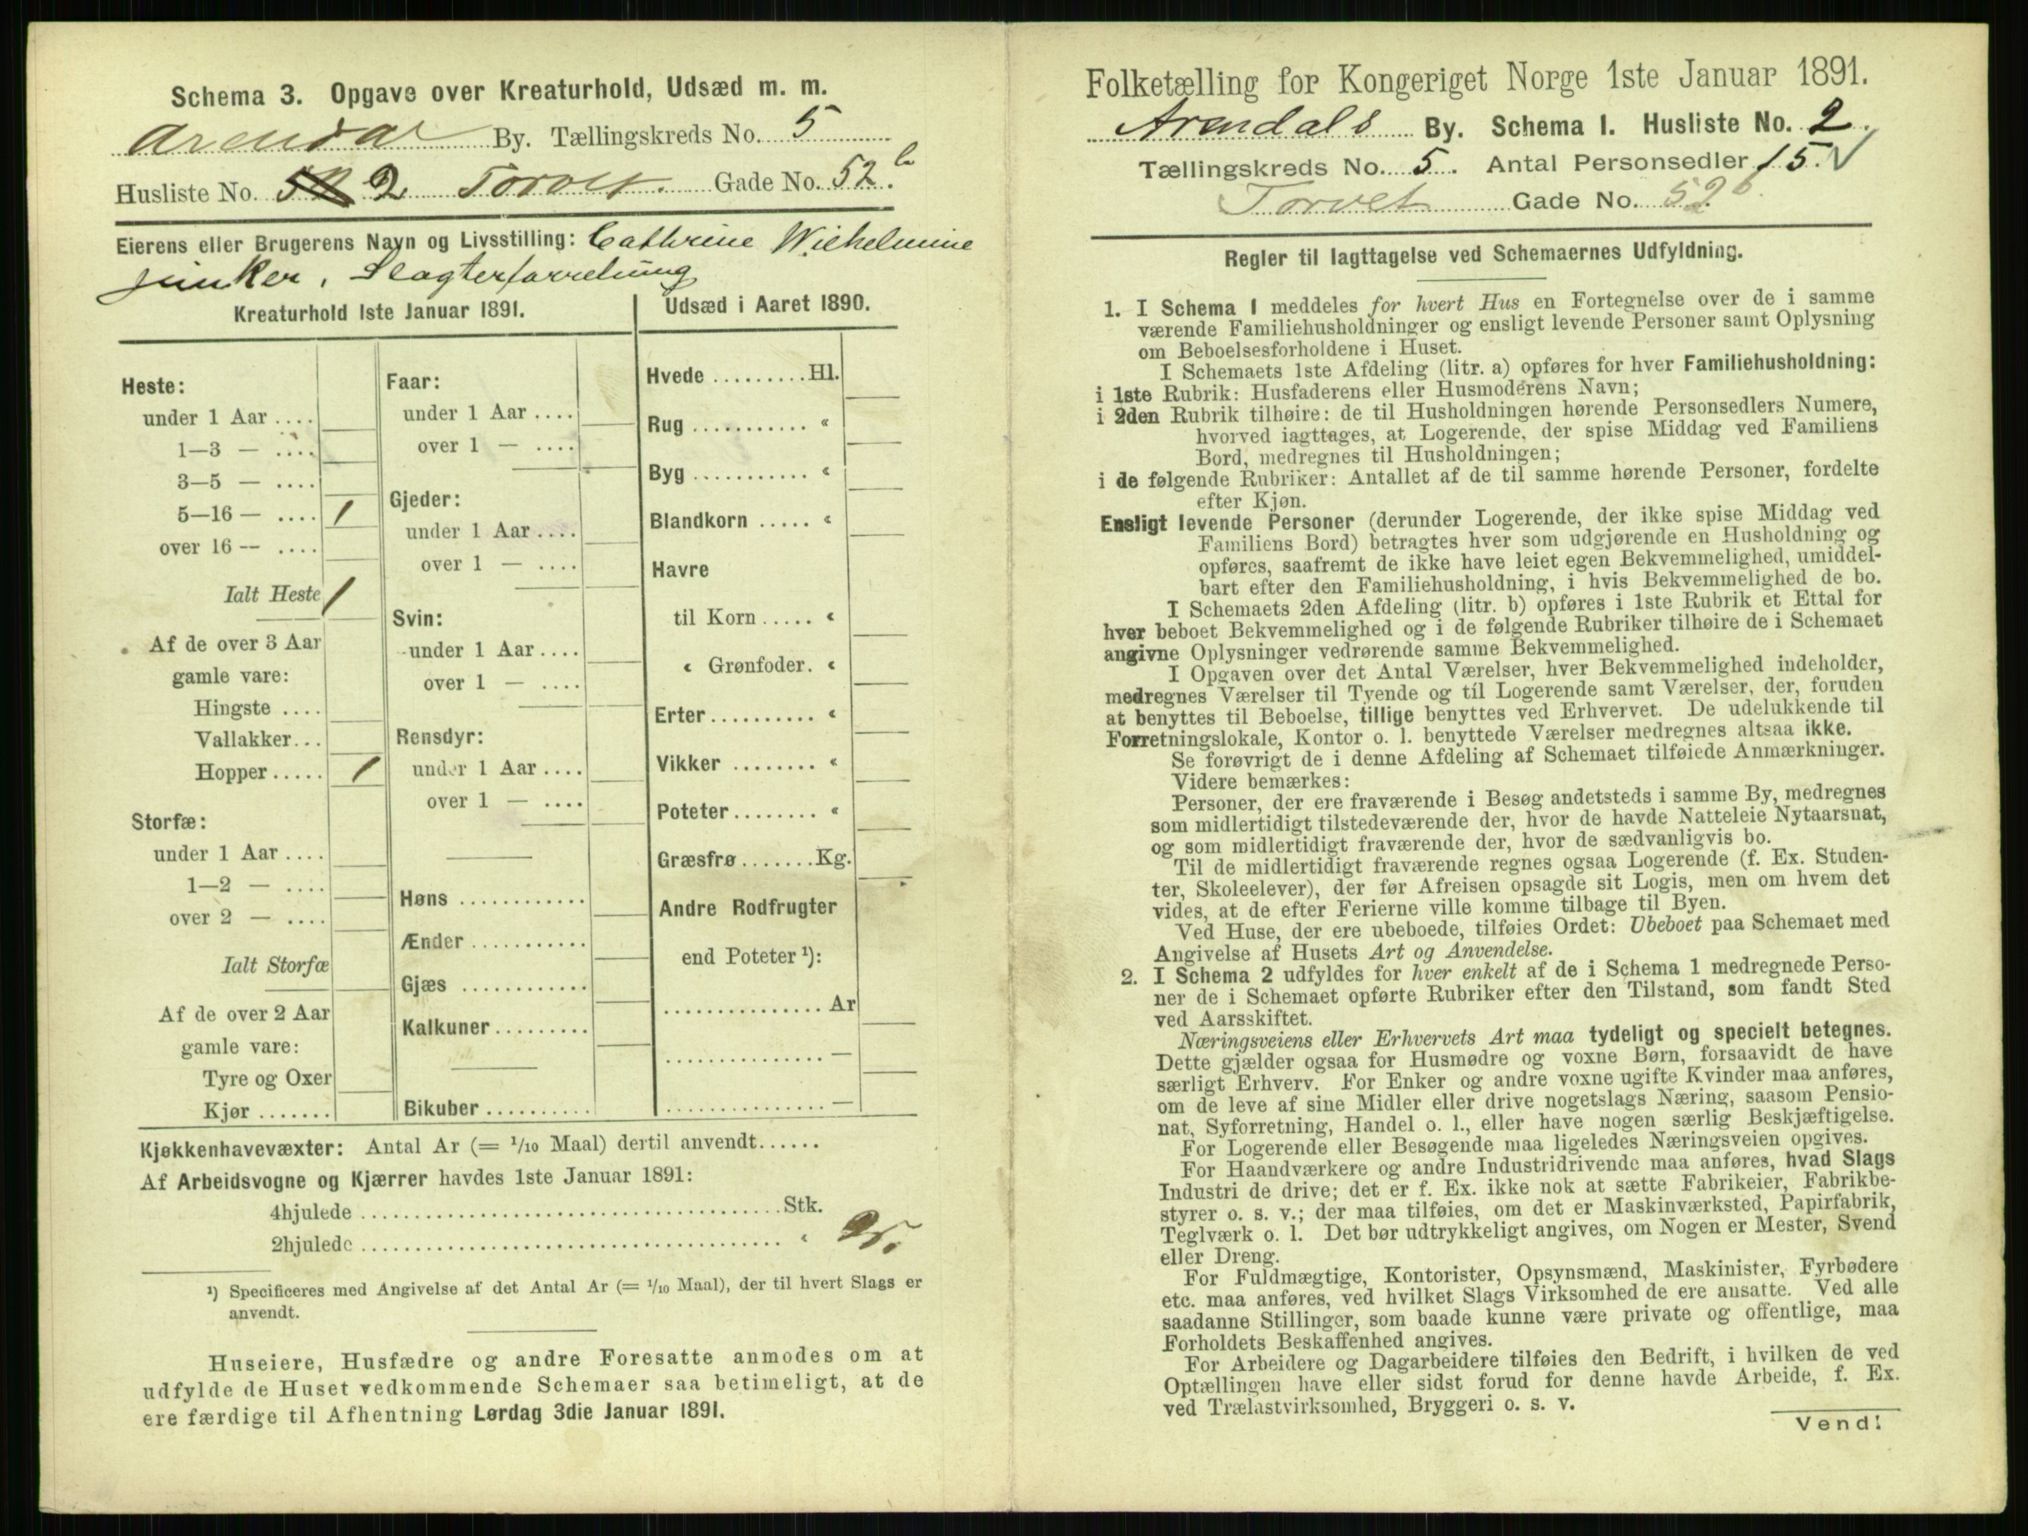 Schema 3. Opgave over Kreaturhold, Udsæd m. m.
Arendal By. Tællingskreds No. 5
Husliste No. 2 Torvet Gade No. 52 b
Eierens eller Brugerens Navn og Livsstilling: Cathrine Wilhelmine
Junker, Slagterforretning
Kreaturhold 1ste Januar 1891.
Heste:
under 1 Aar ....
1—3 — ....
3—5 — ....
5—16 — .... 1
over 16 — ....
Ialt Heste 1
Af de over 3 Aar
gamle vare:
Hingste ....
Vallakker...
Hopper ..... 1
Storfæ:
under 1 Aar ....
1—2 — ....
over 2 — ....
Ialt Storfæ
Af de over 2 Aar
gamle vare:
Tyre og Oxer
Kjør .......
Faar:
under 1 Aar ....
over 1 — ....
Gjeder:
under 1 Aar ....
over 1 — ....
Svin:
under 1 Aar ....
over 1 — ....
Rensdyr:
under 1 Aar ....
over 1 — ....
Høns ............
Ænder ...........
Gjæs ............
Kalkuner.........
Bikuber ..........
Udsæd i Aaret 1890.
Hvede .........Hl.
Rug ........... «
Byg ........... «
Blandkorn ..... «
Havre
til Korn ..... «
« Grønfoder. «
Erter.......... «
Vikker ........ «
Poteter........ «
Græsfrø .......Kg.
Andre Rodfrugter
end Poteter ¹):
............... Ar
............... —
............... —
Kjøkkenhavevæxter: Antal Ar (= 1/10 Maal) dertil anvendt......
Af Arbeidsvogne og Kjærrer havdes 1ste Januar 1891:
4hjulede ........................................Stk.
2hjulede ........................................ «
¹) Specificeres med Angivelse af det Antal Ar (= 1/10 Maal), der til hvert Slags er
anvendt.
Huseiere, Husfædre og andre Foresatte anmodes om at
udfylde de Huset vedkommende Schemaer saa betimeligt, at de
ere færdige til Afhentning Lørdag 3die Januar 1891.
Folketælling for Kongeriget Norge 1ste Januar 1891.
Arendals By. Schema 1. Husliste No. 2.
Tællingskreds No. 5. Antal Personsedler 15.
Torvet Gade No. 52 b.
Regler til Iagttagelse ved Schemaernes Udfyldning.
1. I Schema 1 meddeles for hvert Hus en Fortegnelse over de i samme
værende Familiehusholdninger og ensligt levende Personer samt Oplysning
om Beboelsesforholdene i Huset.
I Schemaets 1ste Afdeling (litr. a) opføres for hver Familiehusholdning:
i 1ste Rubrik: Husfaderens eller Husmoderens Navn;
i 2den Rubrik tilhøire: de til Husholdningen hørende Personsedlers Numere,
hvorved iagttages, at Logerende, der spise Middag ved Familiens
Bord, medregnes til Husholdningen;
i de følgende Rubriker: Antallet af de til samme hørende Personer, fordelte
efter Kjøn.
Ensligt levende Personer (derunder Logerende, der ikke spise Middag ved
Familiens Bord) betragtes hver som udgjørende en Husholdning og
opføres, saafremt de ikke have leiet egen Bekvemmelighed, umiddel-
bart efter den Familiehusholdning, i hvis Bekvemmelighed de bo.
I Schemaets 2den Afdeling (litr. b) opføres i 1ste Rubrik et Ettal for
hver beboet Bekvemmelighed og i de følgende Rubriker tilhøire de i Schemaet
angivne Oplysninger vedrørende samme Bekvemmelighed.
I Opgaven over det Antal Værelser, hver Bekvemmelighed indeholder,
medregnes Værelser til Tyende og til Logerende samt Værelser, der, foruden
at benyttes til Beboelse, tillige benyttes ved Erhvervet. De udelukkende til
Forretningslokale, Kontor o. l. benyttede Værelser medregnes altsaa ikke.
Se forøvrigt de i denne Afdeling af Schemaet tilføiede Anmærkninger.
Videre bemærkes:
Personer, der ere fraværende i Besøg andetsteds i samme By, medregnes
som midlertidigt tilstedeværende der, hvor de havde Natteleie Nytaarsnat,
og som midlertidigt fraværende der, hvor de sædvanligvis bo.
Til de midlertidigt fraværende regnes ogsaa Logerende (f. Ex. Studen-
ter, Skoleelever), der før Afreisen opsagde sit Logis, men om hvem det
vides, at de efter Ferierne ville komme tilbage til Byen.
Ved Huse, der ere ubeboede, tilføies Ordet: Ubeboet paa Schemaet med
Angivelse af Husets Art og Anvendelse.
2. I Schema 2 udfyldes for hver enkelt af de i Schema 1 medregnede Perso-
ner de i Schemaet opførte Rubriker efter den Tilstand, som fandt Sted
ved Aarsskiftet.
Næringsveiens eller Erhvervets Art maa tydeligt og specielt betegnes.
Dette gjælder ogsaa for Husmødre og voxne Børn, forsaavidt de have
særligt Erhverv. For Enker og andre voxne ugifte Kvinder maa anføres,
om de leve af sine Midler eller drive nogetslags Næring, saasom Pensio-
nat, Syforretning, Handel o. l., eller have nogen særlig Beskjæftigelse.
For Logerende eller Besøgende maa ligeledes Næringsveien opgives.
For Haandværkere og andre Industridrivende maa anføres, hvad Slags
Industri de drive; det er f. Ex. ikke nok at sætte Fabrikeier, Fabrikbe-
styrer o. s. v.; der maa tilføies, om det er Maskinværksted, Papirfabrik,
Teglværk o. l. Det bør udtrykkeligt angives, om Nogen er Mester, Svend
eller Dreng.
For Fuldmægtige, Kontorister, Opsynsmænd, Maskinister, Fyrbødere
etc. maa anføres, ved hvilket Slags Virksomhed de ere ansatte. Ved alle
saadanne Stillinger, som baade kunne være private og offentlige, maa
Forholdets Beskaffenhed angives.
For Arbeidere og Dagarbeidere tilføies den Bedrift, i hvilken de ved
Optællingen have eller sidst forud for denne havde Arbeide, f. Ex.
ved Trælastvirksomhed, Bryggeri o. s. v.
Vend!